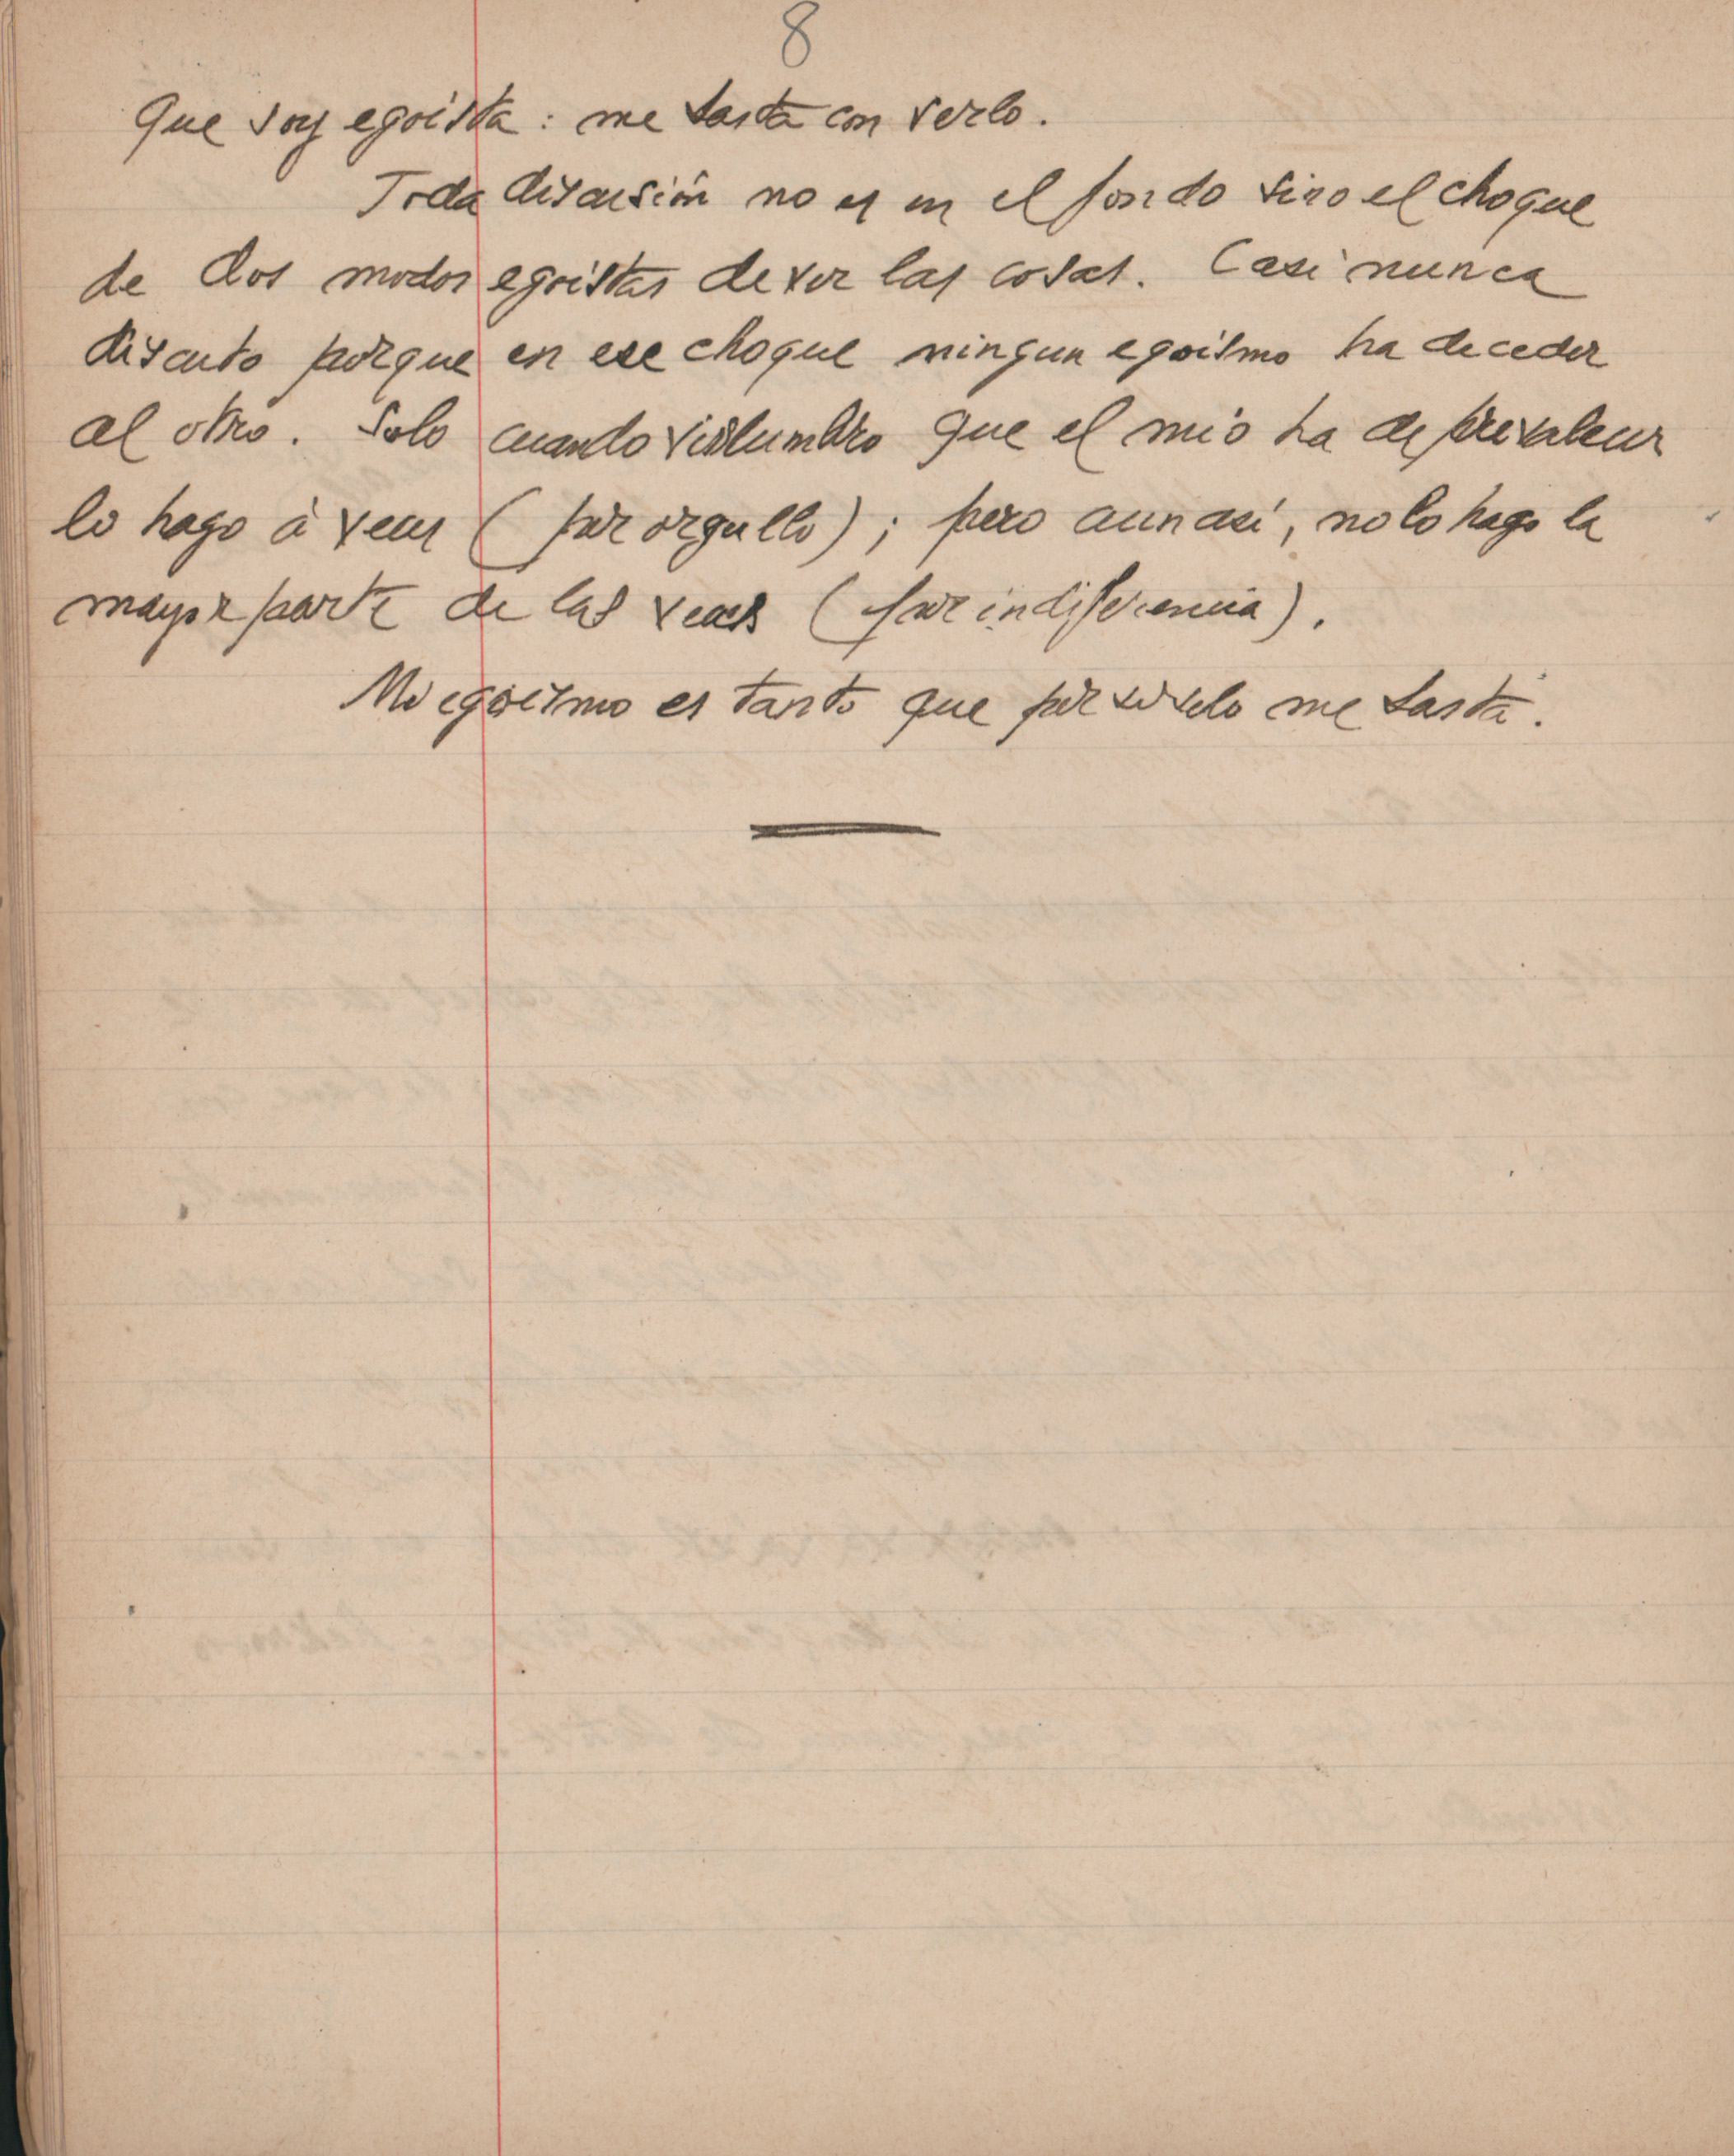 8
Que soy egoista: me basta con serlo.
Toda discusión no es en el fondo sino el choque
de dos modos egoistas de ver las cosas. Casi nunca
discuto porque en ese choque ningun egoismo ha de ceder
al otro. Solo cuando vislumbro que el mio ha de prevalecer
lo hago à veces (por orgullo); pero aun asi, no lo hago la
mayor parte de las veces (por indiferencia).
Mi egoismo es tanto que por si solo me basta.